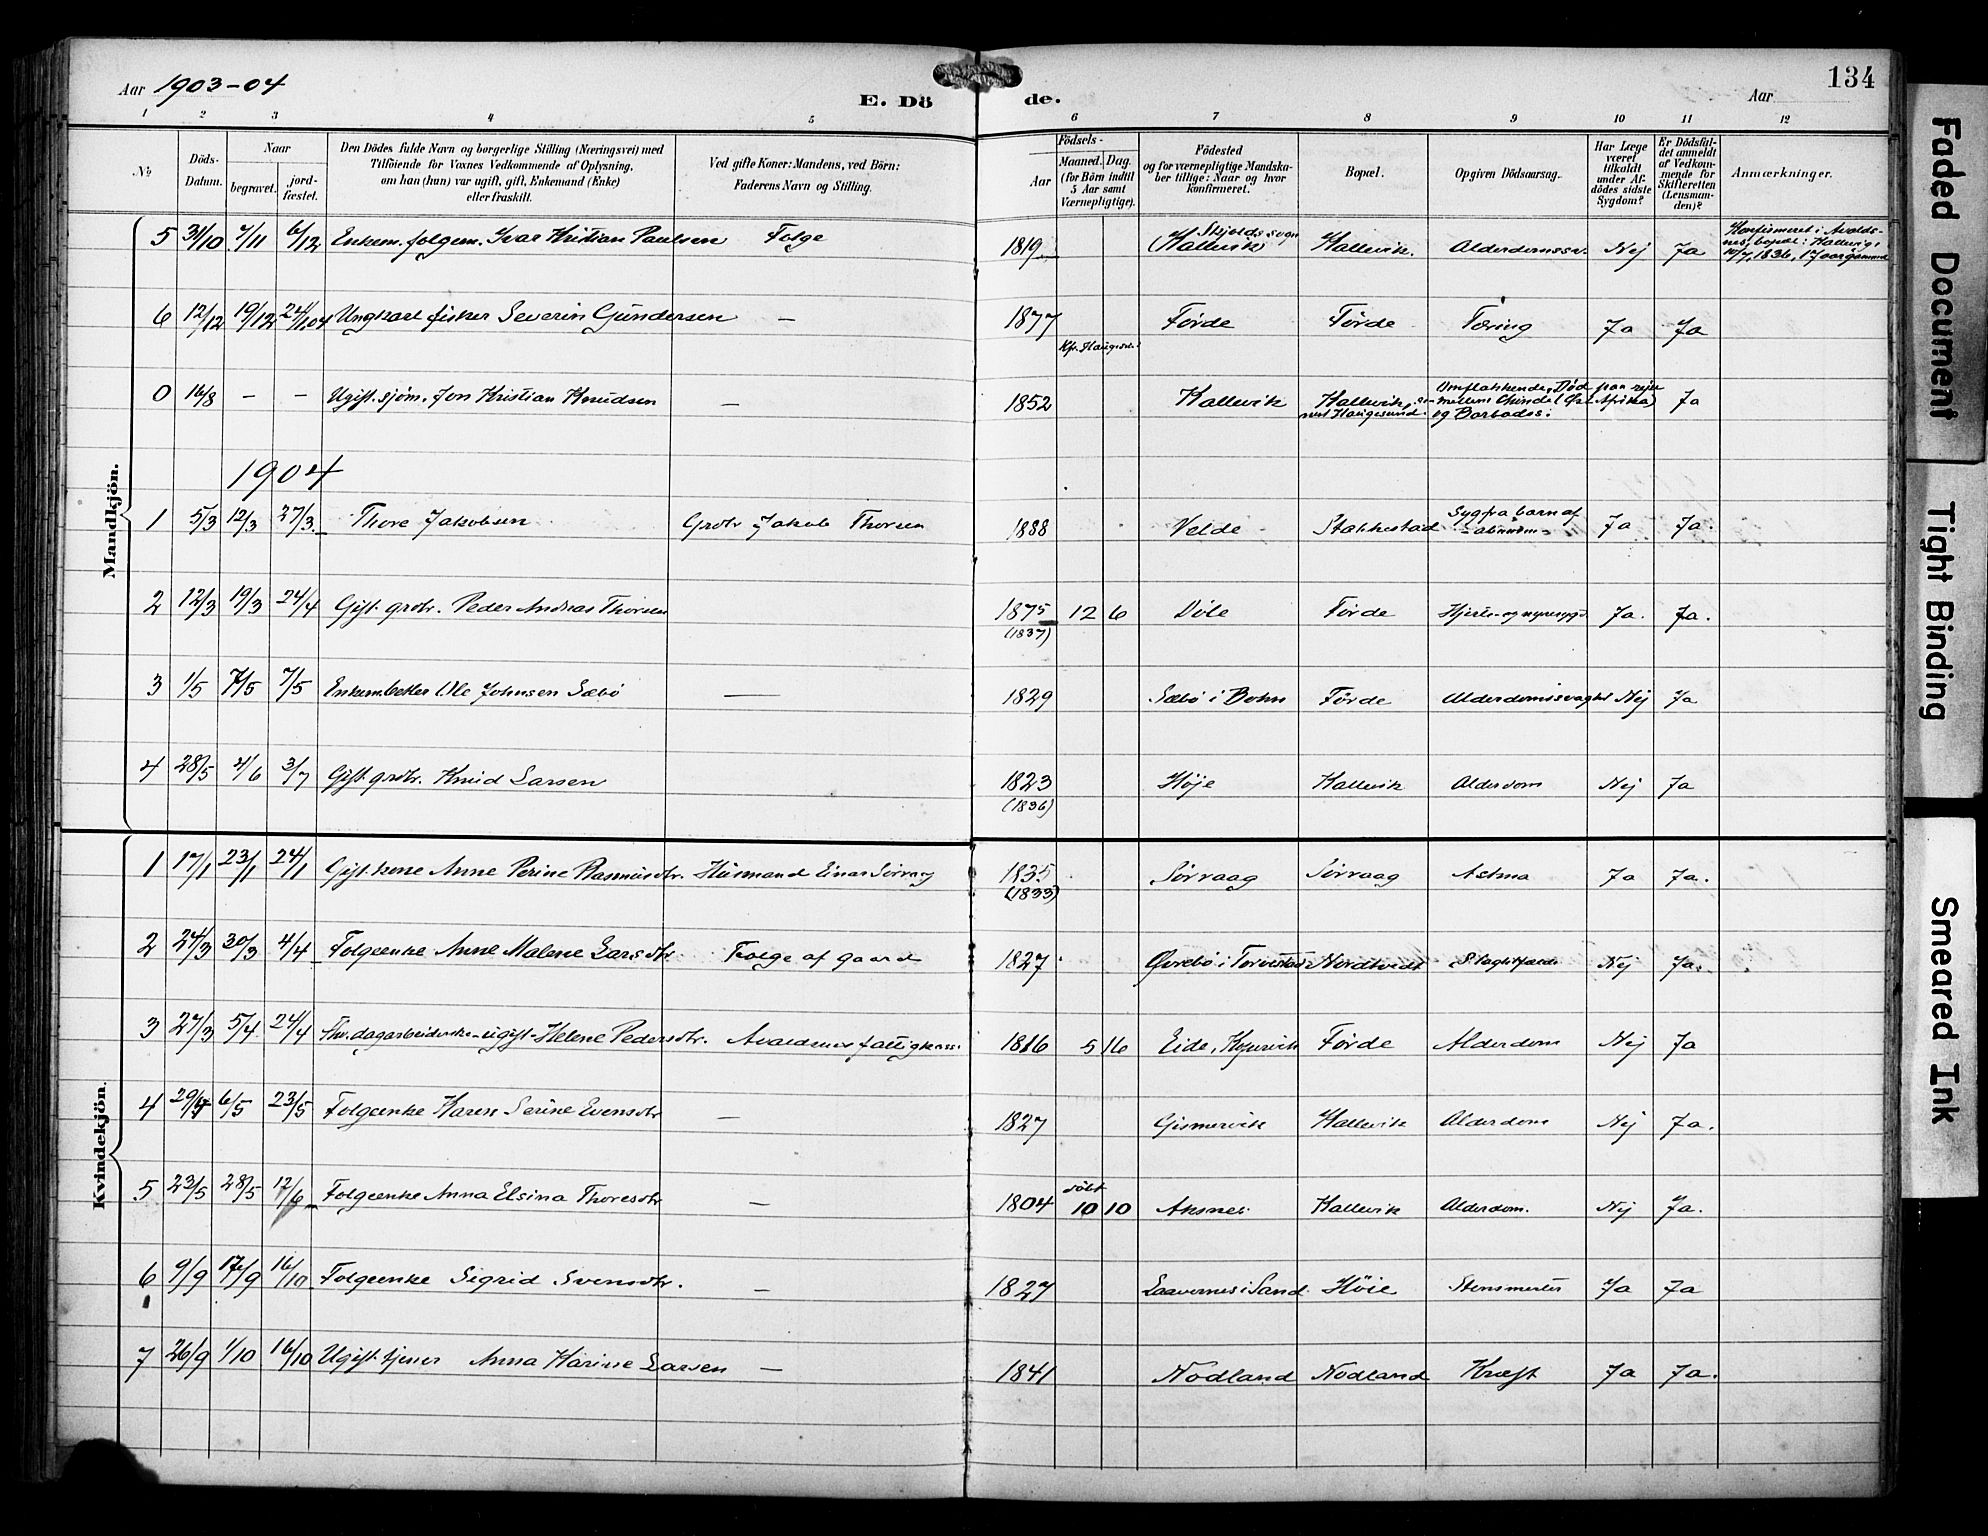 Aar 1903-04
E. Dö de.
Aar
134
1 2 3 4 5 6 7 8 9 10 11 12
No
Döds-Datum.
Naar
begravet.
jord-fæstet.
Den Dödes fulde Navn og borgerlige Stilling (Næringsvei) med
Tilföiende for Voxnes Vedkommende af Oplysning,
om han (hun) var ugift, gift, Enkemand (Enke)
eller fraskilt.
Ved gifte Koner: Mandens, ved Börn:
Faderens Navn og Stilling.
Födsels-
Aar
Maaned. Dag.
(for Börn indtil
5 Aar samt
Værnepligtige).
Födested
og for værnepligtige Mandska-
ber tillige: Naar og hvor
Konfirmeret.
Bopæl.
Opgiven Dödsaarsag.
Har Læge
været
tilkaldt
under Af-
dödes sidste
Sygdom?
Er Dödsfal-
det anmeldt
af Vedkom-
mende for
Skifteretten
(Lensman-
den)?
Anmærkninger.
Mandkjön.
5 31/10 7/11 6/12 Enkem. folgem. Ivar Kristian Paulsen Folge 1819 Skjolds sogn (Hallevik) Kallevik. Alderdomssv. Nej Ja Konfirmeret i Avalds-
nes, bopæl: Kallevig,
10/7, 1836, 17 aar gammel
6 12/12 19/12 24/1.04 Ungkarl fisker Severin Gundersen — 1877 Förde Förde Tæring Ja Ja
0 16/8 — — Ugift. sjöm. Jon Kristian Knudsen — 1852 Kallevik Kallevik Omflakkende. Död paa rejse
mellem (Öst Afrika)
og Barbados. Ja
1904
1 5/3 12/3 27/3 Thore Jakobsen Grdbr Jakob Thorsen 1888 Velde Stakkestad Syg fra barn af Ja Ja.
2 12/3 19/3 24/4 Gift. grdbr. Peder Andreas Thorsen 1875 (1837) 12 6 Döle Förde Hjerte- og nyresygd. Ja. Ja.
3 1/5 7/5 7/5 Enkem. betler Ole Johnsen Sæbö — 1829 Sæbö i Förde Alderdomssvaghet Nej Ja
4 28/5 4/6 3/7 Gift. grdbr. Knud Larsen 1823 (1836) Höje Kallevik Alderdom Nej Ja
Kvindekjön.
1 17/1 23/1 24/1 Gift. kone Anne Perine Rasmusdtr. Husmand Einar Sörraag 1835 (1833) Sörraag Sörraag Astma Ja Ja.
2 24/3 30/3 4/4 Folgeenke Anne Malene Larsdtr. Folge af gaard 1827 Övrebö i Torvestad Nordtvedt Nej Ja.
3 27/3 5/4 24/4 ugift Helene Pedersdtr. Avaldsnes fattigkasse. 1816 5 16 Eide, Kopervik Förde Alderdom Nej Ja
4 29/4 6/5 23/5 Folgeenke Karen Serine Evensdtr — 1827 Gismervik Kallevik Alderdom Nej Ja.
5 23/5 28/5 12/6 Folgeenke Anna Elsina Thoresdtr — 1804 döbt 10 10 Aksnes Kallevik Alderdom. Nej Ja.
6 9/9 17/9 16/10 Folgeenke Sigrid Svensdtr. — 1827 i Sand Höie Stensmerter Ja Ja
7 26/9 1/10 16/10 Ugift tjener Anna Karine Larsen — 1841 Nodland Nodland Kræft Ja Ja.
Faded Document
Tight Binding
Smeared Ink